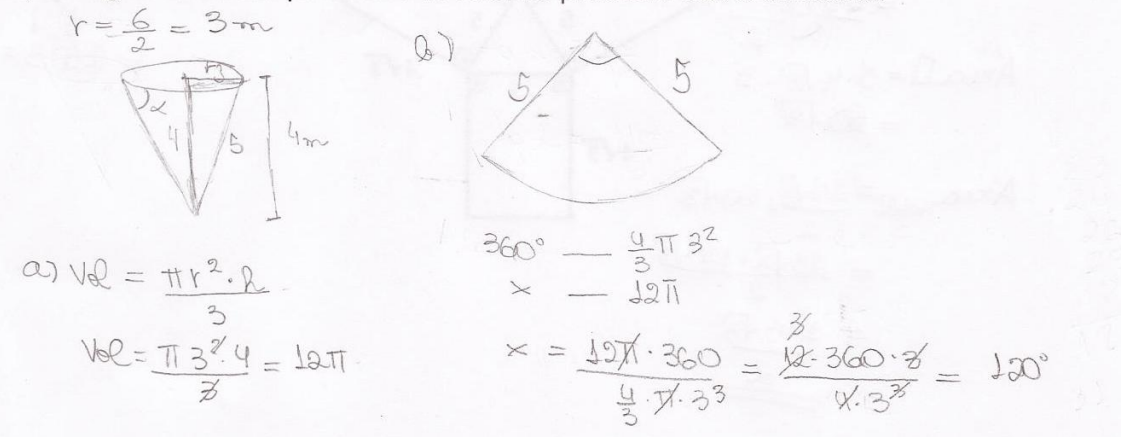 r = 6/2 = 3m
r 3
α
4
5
4m
a) Vol = πr²·h/3
Vol = π3²·4/3 = 12π
b)
5
5
360° — 4/3 π 3²
x — 12π
x = 12π·360 / 4/3·π·3³ = 12·360·3 / 4·3³ = 120°
3